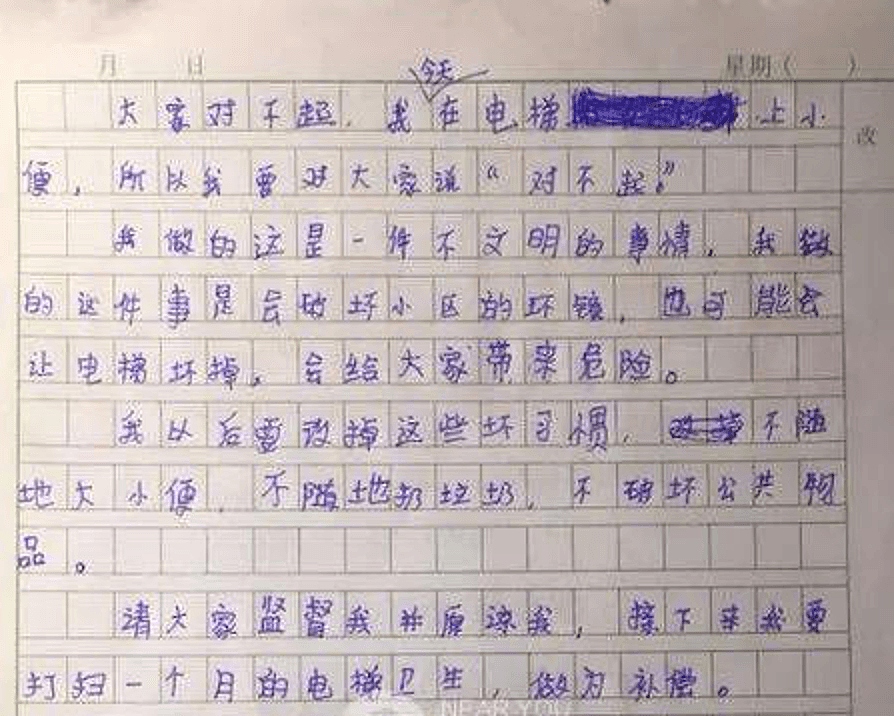 月 日 星期( )
今天
大家对不起,我在电梯上小
改
便,所以我要对大家说“对不起。”
我做的这是一件不文明的事情,我做
的这件事是会破坏小区的环镜,也可能会
让电梯坏掉,会给大家带来危险。
我以后要改掉这些坏习惯,不随
地大小便,不随地扔垃圾,不破坏公共物
品。
请大家监督我并原谅我,接下来我要
打扫一个月的电梯卫生,做为补偿。
NEAR YOU